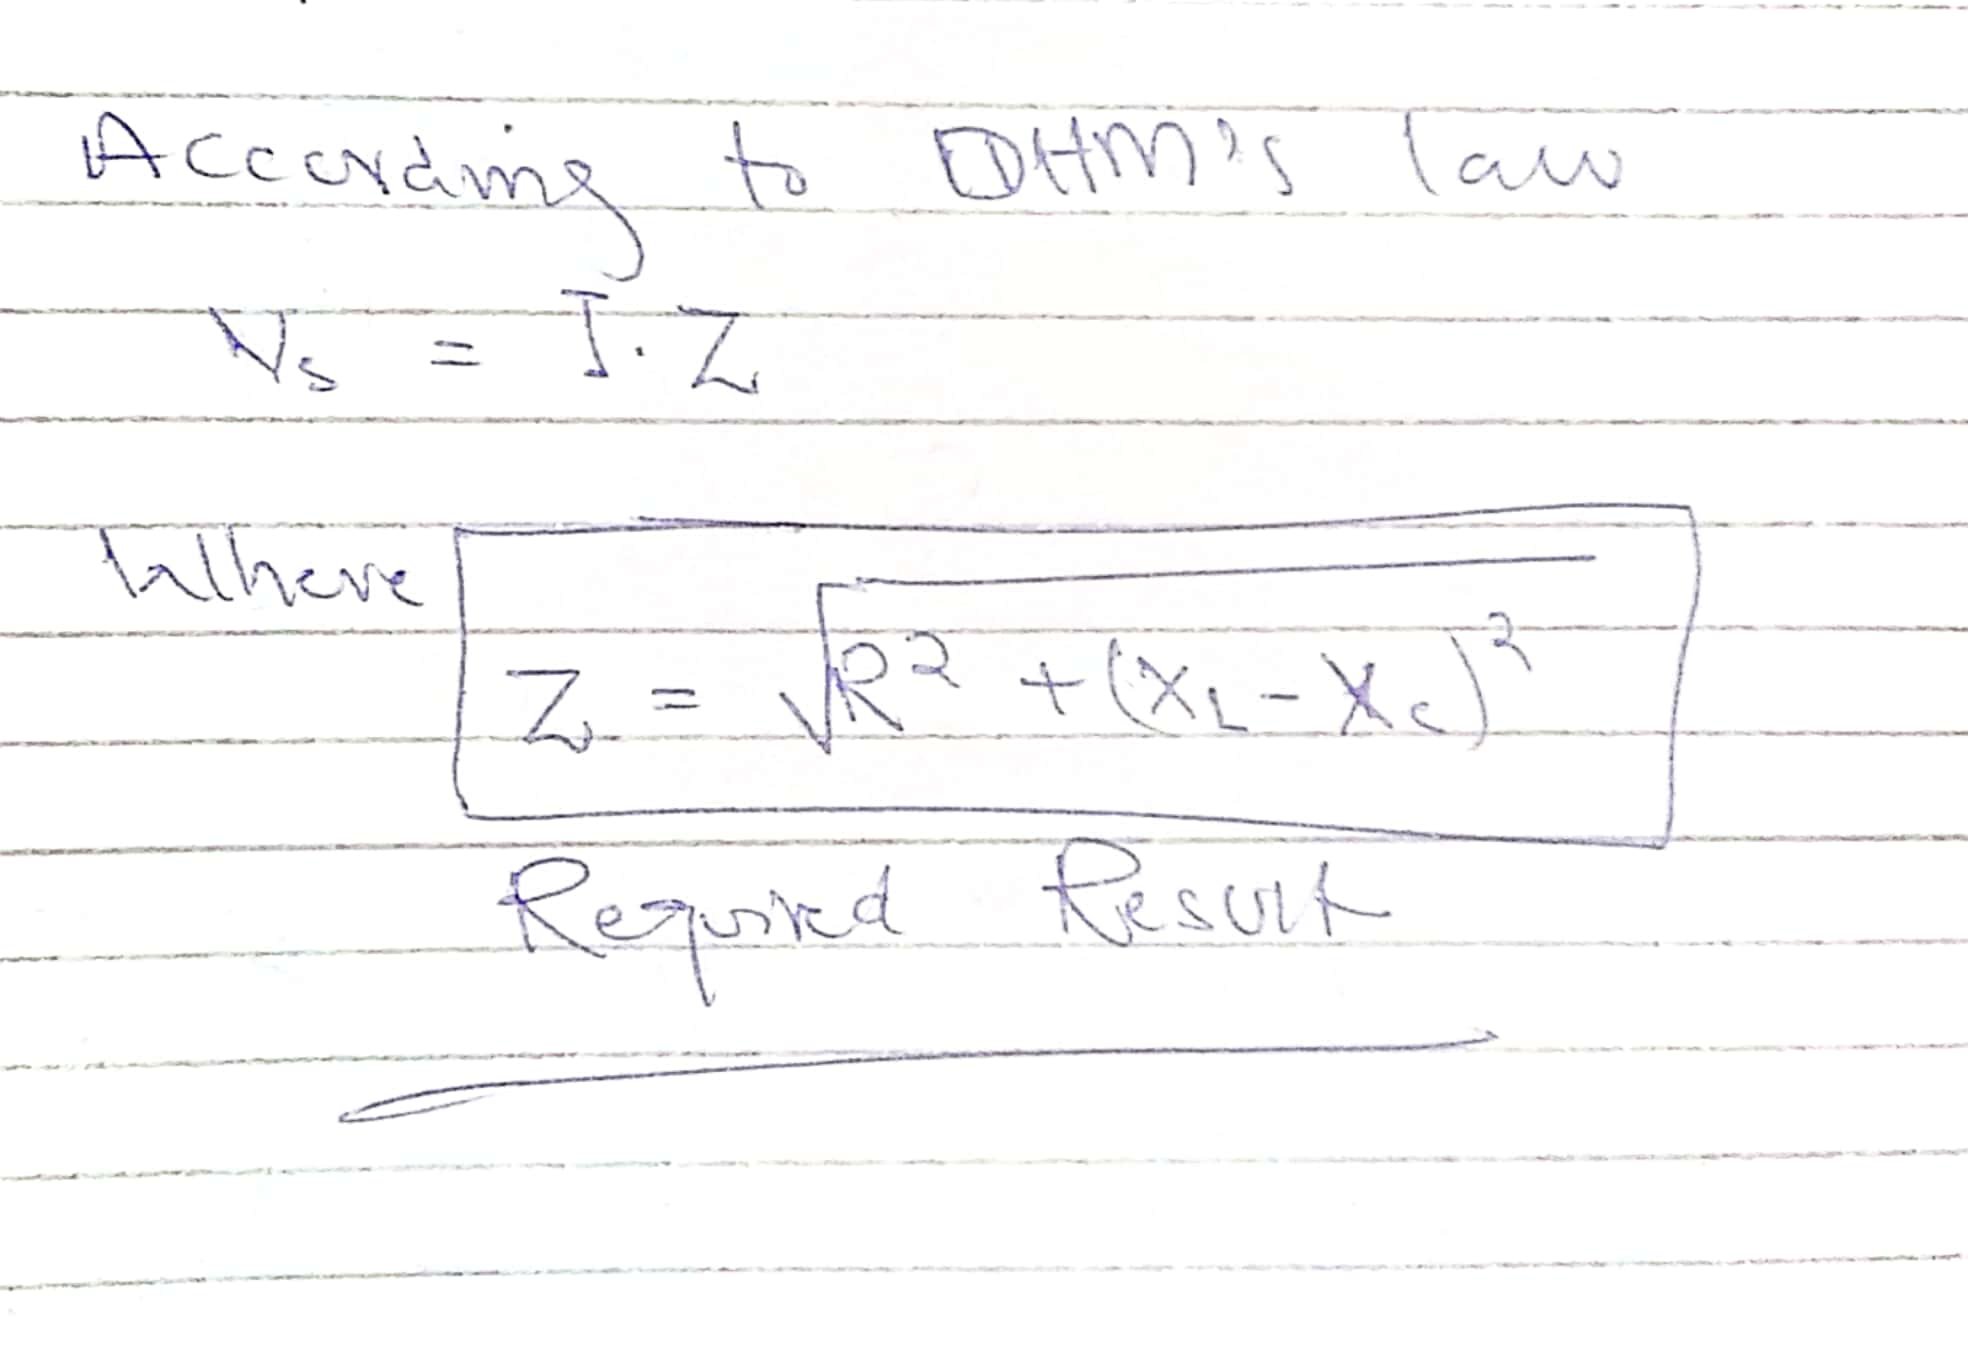 According to OHM's law
Vs = I.Z
Where
Z = √R² + (XL - Xc)²
Required Result